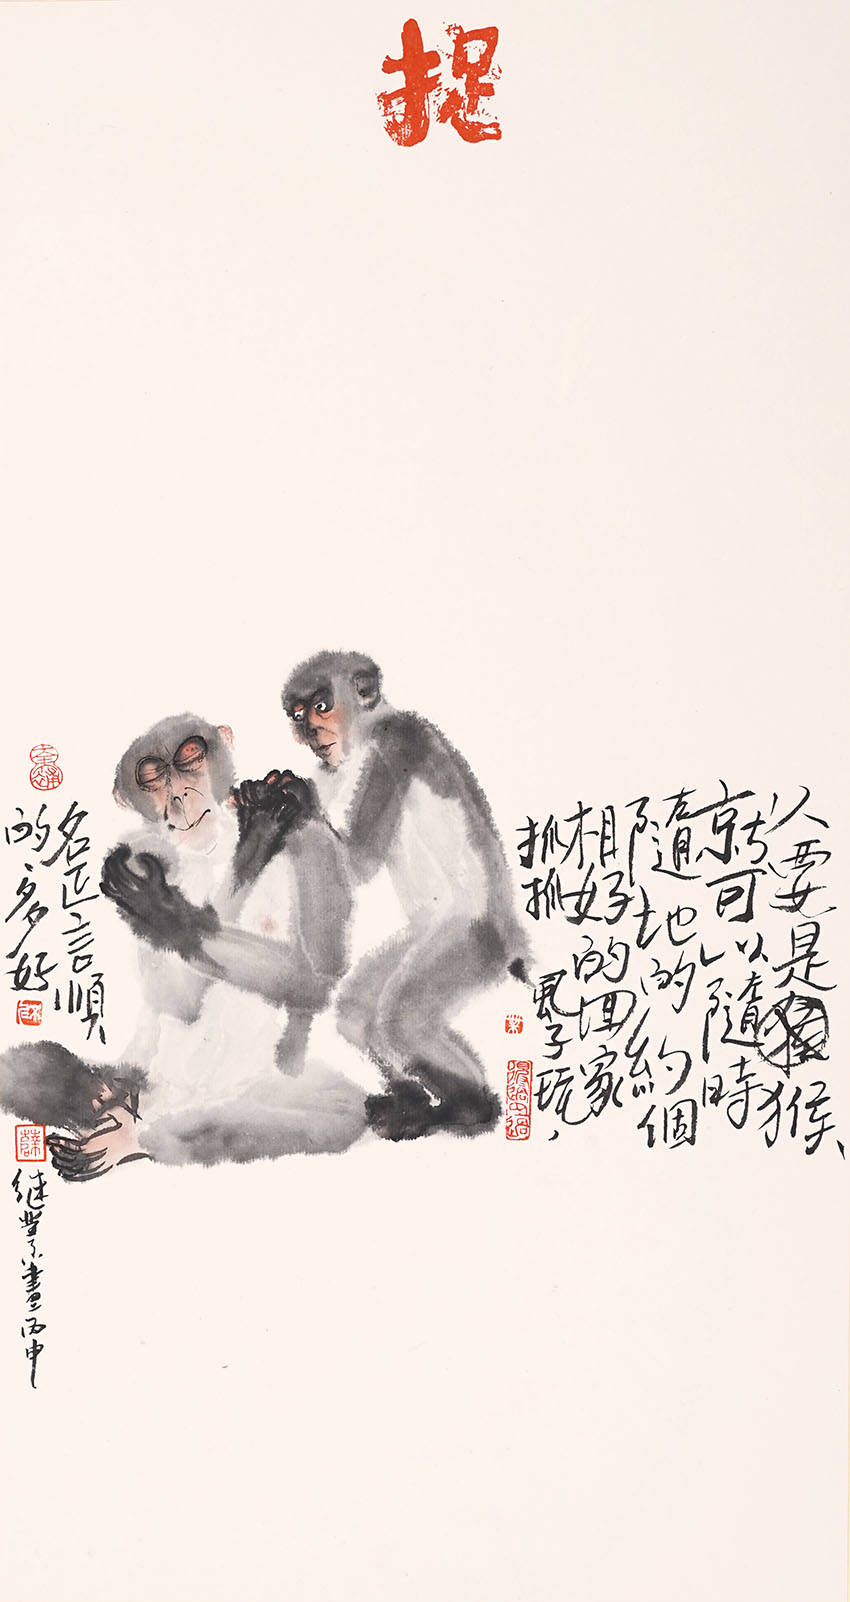 捉
人要是猴
就可以隨時
隨地的約個
相好的回家
抓抓虱子玩、
名正言順
的多好
继業畫丙申
業
薛